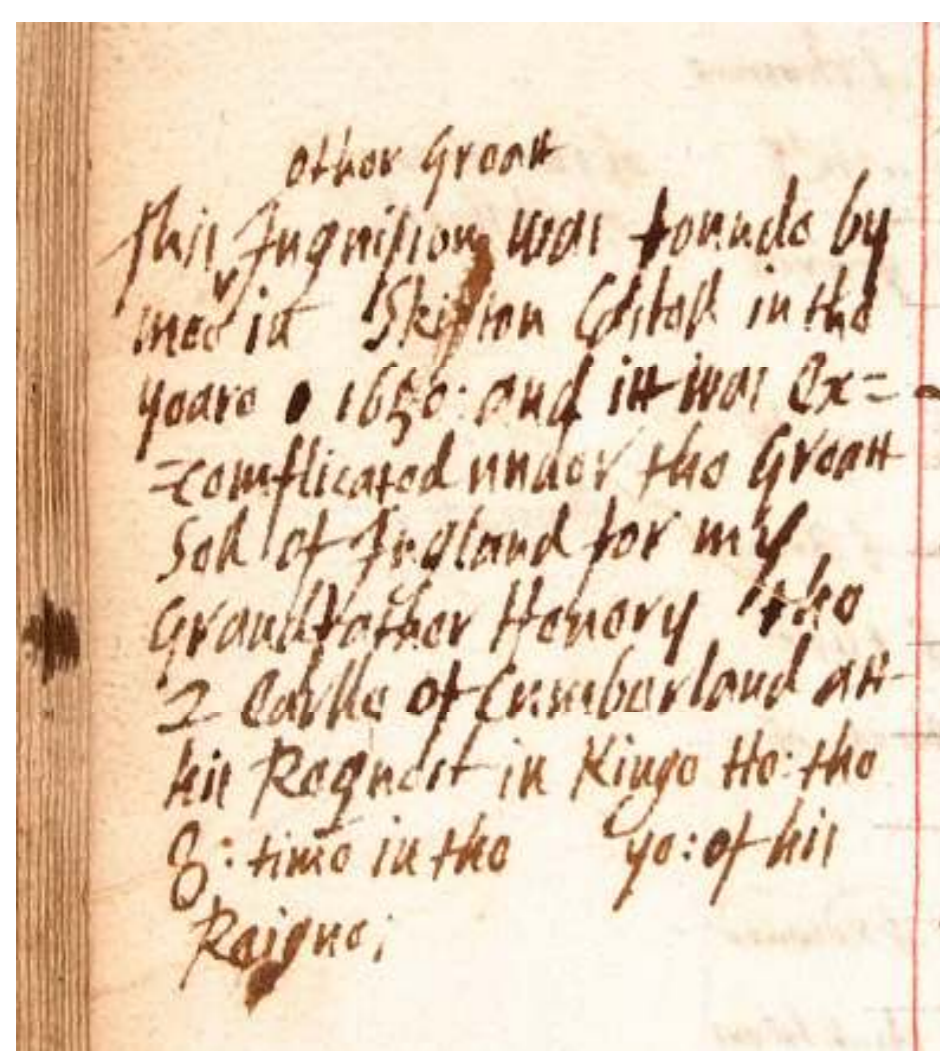 other Greatt
This Inquision was founde by
mee in Skipton Castell in the
yeare 1650: and itt was Ex=
=complicated under the Greatt
Sell of Ingland for my
Grandfather Henery the
2 Earlle of Cumberland att
his Requést in Kinge He: the
8: time in the ye: of his
Raigne;